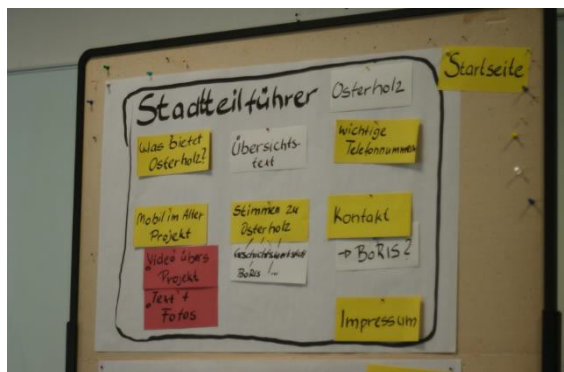 Startseite
Stadtteilführer
Osterholz
Was bietet
Osterholz?
Übersichts-
text
Wichtige
Telefonnummern
Mobil im Alter
Projekt
Stimmen zu
Osterholz
Kontakt
Video übers
Projekt
BoRiS /...
→ BoRiS?
Text +
Fotos
Impressum